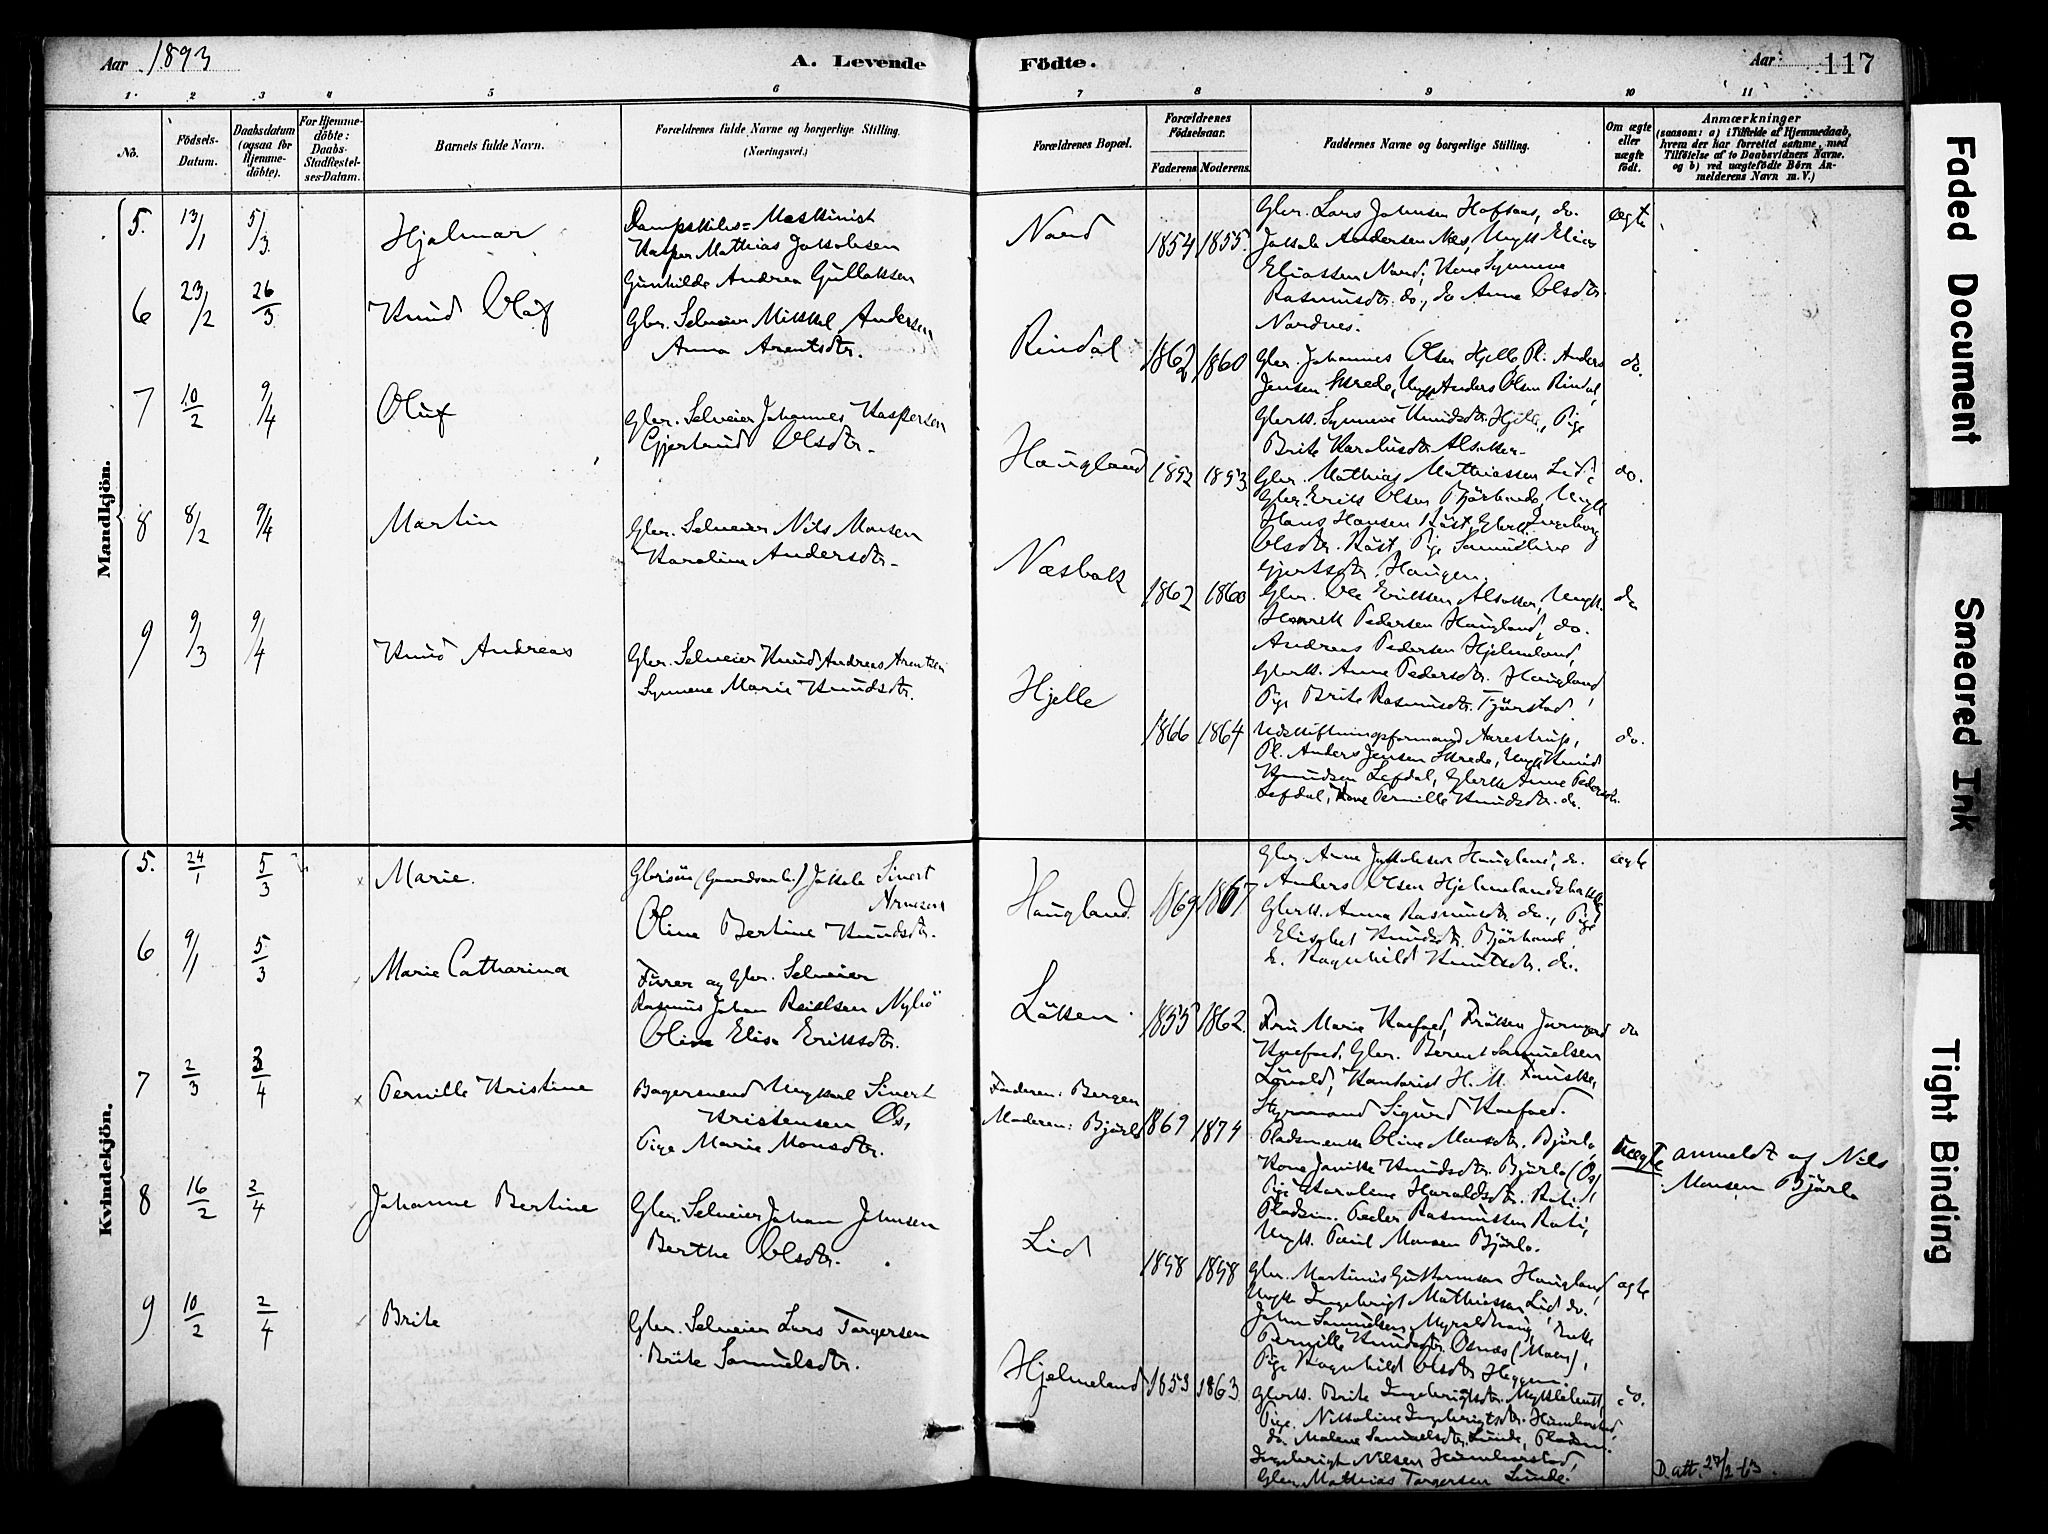 Aar 1893
A. Levende
Födte.
Aar
117
1.
2
3
4
5
6
7
8
9
10
11
No.
Födsels-
Datum.
Daabsdatum
(ogsaa for
Hjemme-
döbte).
For Hjemme-
döbte:
Daabs-
Stadfestel-
ses-Datum.
Barnets fulde Navn.
Forældrenes fulde Navne og borgerlige Stilling.
(Næringsvei.)
Forældrenes Bopæl.
Forældrenes
Födselsaar.
Faderens
Moderens.
Faddernes Navne og borgerlige Stilling.
Om ægte
eller
uægte
födt.
Anmærkninger
(saasom: a) i Tilfælde af Hjemmedaab,
hvem der har forrettet samme, med
Tilföielse af to Daabsvidners Navne.
og b) ved uægtefödte Börn An-
melderens Navn m. V.)
Mandkjön.
5.
13/1
5/3
Hjalmar
Dampskibs-Maskinist
Kasper Mathias Jakobsen
Gunhilde Andrea Gullaksen
Nord
1854
1855.
Gbr. Lars Johnsen Hafsaas, do.
Jakob Andersen Næs, Ungk. Elias
Eliassen Nord, Kone Synneve
Rasmusdtr. do., do Anne Olsdtr.
Nordnes.
ægte
6
23/2
26/3
Knud Olaf
Gbr. Selveier Mikkel Andersen
Anna Arentsdtr.
Rindal
1862
1860
Gbr. Johannes Olsen Hjelle, Pl. Anders
Jensen Skrede, Ungk. Anders Olsen Rindal,
Gbrk. Synneve Knudsdtr. Hjelle, Pige
Brite Karolusdtr. Alsaker.
do.
7
10/2
9/4
Oluf
Gbr. Selveier Johannes Kaspersen
Gjertrud Olsdtr.
Haugland
1852
1853
Gbr. Mathias Mathiassen Lid,
Gbr. Erik Olsen Bjørhovde, Ungk.
Hans Hansen Råst, Gbrk. Ingeborg
Olsdtr. Råst, Pige Samueline
Gjertsdtr. Haugen.
do.
8
8/2
9/4
Martin
Gbr. Selveier Nils Monsen
Karoline Andersdtr.
Næsbak
1862
1860
Gbr. Ole Eriksen Alsaker, Ungk.
Henrik Pedersen Haugland, do.
Andreas Pedersen Hjelmeland,
Gbrk. Anne Pedersdtr. Haugland,
Pige Brite Rasmusdtr. Tjørstad.
do
9
9/3
9/4
Knud Andreas
Gbr. Selveier Knud Andreas Arentsen
Synneve Marie Knudsdtr.
Hjelle
1866
1864
Udskiftningsformand Aarestrup,
Pl. Anders Jensen Skrede, Ungk. Knud
Knudsen Lefdal, Gbrk. Anne Pedersdtr.
Lefdal, Kone Pernille Knudsdtr. do.
do.
Kvindekjön.
5.
24/1
5/3
Marie.
Gbrsøn (Gaardsarb.) Jakob Sivert
Arnesen
Oline Bertine Knudsdtr.
Haugland.
1869
1867
Gbr. Arne Jakobsen Haugland, do.
Anders Olsen Hjelmelandsbakke
Gbrk. Anna Rasmusdtr. do., Pige
Elisabet Knudsdtr. Bjørhovde,
do. Ragnhild Knutsdtr. do.
ægte
6
9/1
5/3
Marie Catharina
Furer og Gbr. Selveier
Rasmus Johan Reielsen Myhrø
Oline Elise Eriksdtr.
Løkken
1855
1862.
Fru Marie Koefoed, Frøken Jørmgard
Koefoed, Gbr. Berent Samuelsen
Løvold, Kontorist H. M. Fauske,
Styrmand Sigurd Koefoed.
do
7
2/3
2/4
Pernille Kristine
Bagersvend Ungkarl Sivert
Kristensen Os,
Pige Marie Monsdtr.
Faderen: Bergen
Moderen: Bjørlo
1869
1874
Pladsmenske Oline Monsdtr. Bjørlo,
Kone Janikke Knudsdtr. Bjørlo (Os),
Pige Karolene Haraldsdtr. Roti,
Pladsm. Peder Rasmussen Roti,
Ungk. Paul Monsen Bjørlo.
Uægte
anmeldt af Nils
Monsen Bjørlo
8
16/2
2/4
Johanne Bertine
Gbr. Selveier Johan Johnsen
Berthe Olsdtr.
Lid
1858
1858
Gbr. Martinus Guttormsen Haugland,
Ungk. Ingebrigt Mathiassen Lid, do.
John Samuelsen Myroldhaug, Enke
Pernille Knudsdtr. Osnæs (Moen),
Pige Ragnhild Olsdtr. Heggen.
ægte
9
10/2
2/4
Brite
Gbr. Selveier Lars Torgersen
Brite Samuelsdtr.
Hjelmeland
1853
1863
Gbrk. Brite Ingebrigtsdtr. Myklebust,
Pige Nikoline Ingebrigtsdtr. Heimhorstad,
do. Malene Samuelsdtr. Lunde, Pladsm.
Ingebrigt Nilsen Heimhorstad,
Gbr. Mathias Torgersen Lunde.
do.
D. att. 27/2-63.
Faded Document
Smeared Ink
Tight Binding